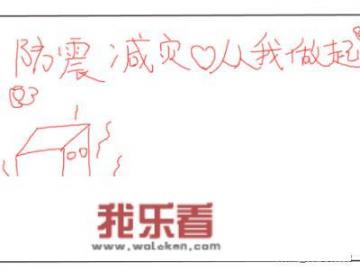 防震减灾♡从我做起
我乐看
www.woleken.com